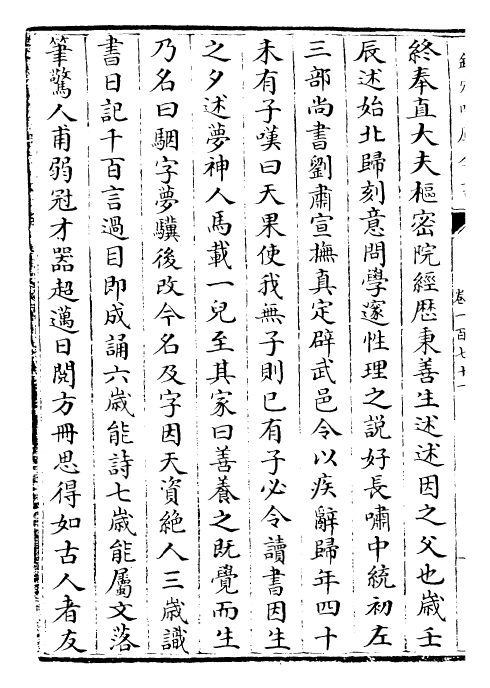 終奉直大夫樞密院經歴秉善生述述因之父也歳壬
辰述始北歸刻意問學邃性理之説好長嘯中統初左
三部尚書劉肅宣撫真定辟武邑令以疾辭歸年四十
未有子嘆曰天果使我無子則已有子必令讀書因生
之夕述夢神人馬載一兒至其家曰善養之既覺而生
乃名曰駰字夢驥後改今名及字因天資絶人三歳識
書日記千百言過目即成誦六歳能詩七歳能屬文落
筆驚人甫弱冠才器超邁日閲方冊思得如古人者友
卷一百七十一